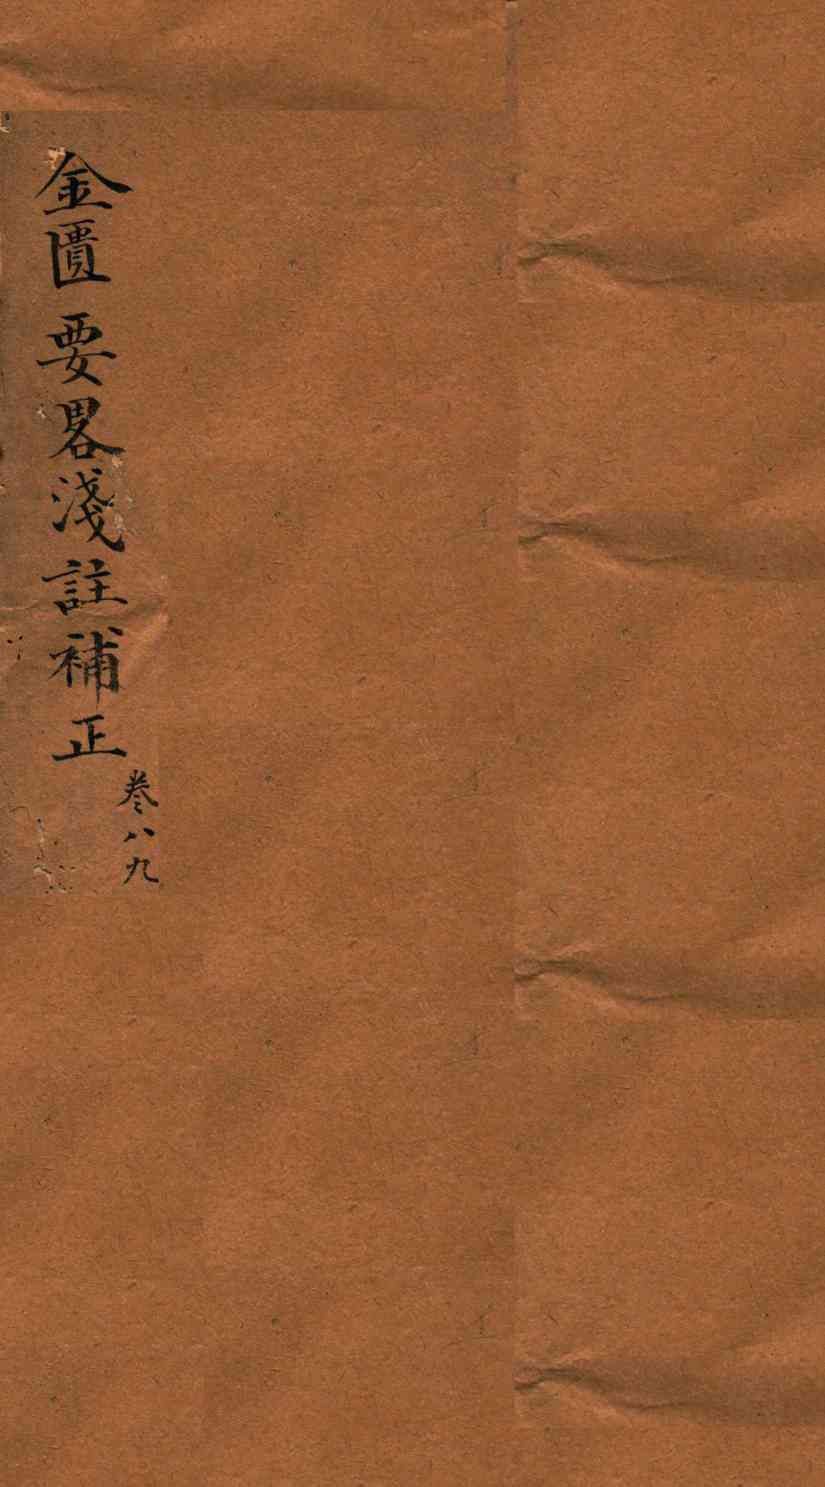 金匱要畧淺註補正
卷八九